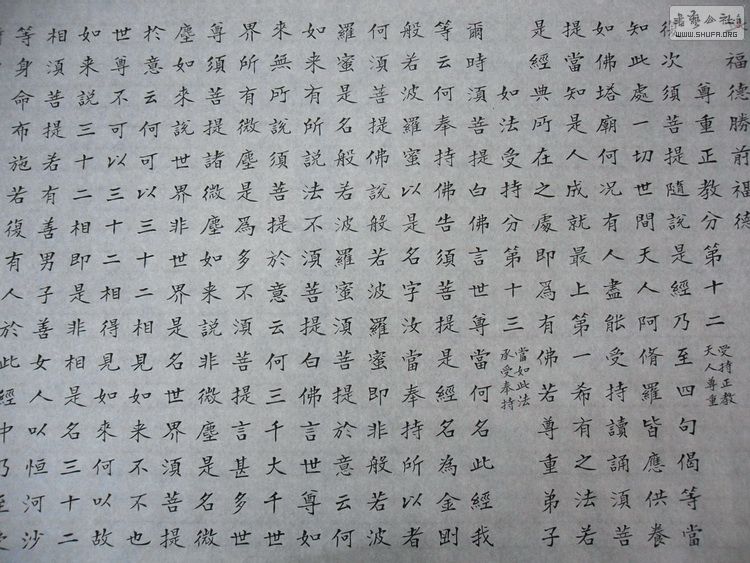 福德勝前福德
尊重正教分第十二
受持正教
天人尊重
復次須菩提隨說是經乃至四句偈等當
知此處一切世間天人阿脩羅皆應供養
如佛塔廟何況有人盡能受持讀誦須菩
提當知是人成就最上第一希有之法若
是經典所在之處即為有佛若尊重弟子
如法受持分第十三
當如此法
承受奉持
爾時須菩提白佛言世尊當何名此經我
等云何奉持佛告須菩提是經名為金剛
般若波羅蜜以是名字汝當奉持所以者
何須菩提佛說般若波羅蜜即非般若波
羅蜜是名般若波羅蜜須菩提於意云何
如來有所說法不須菩提白佛言世尊如
來無所說須菩提於意云何三千大千世
界所有微塵是為多不須菩提言甚多世
尊須菩提諸微塵如来說非微塵是名微
塵如来說世界非世界是名世界須菩提
於意云何可以三十二相見如来不不也
世尊不可以三十二相得見如來何以故
如来說三十二相即是非相是名三十二
相須菩提若有善男子善女人以恒河沙
等身命布施若復有人於此經中乃至
WWW.SHUFA.ORG